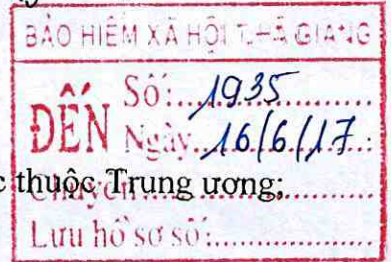 BẢO HIỂM XÃ HỘI T. HÀ GIANG
ĐẾN
Số:...1935...........
Ngày...16/6/17...:
c thuộc Trung ương;
Chuyển:.................
Lưu hồ sơ số:.............